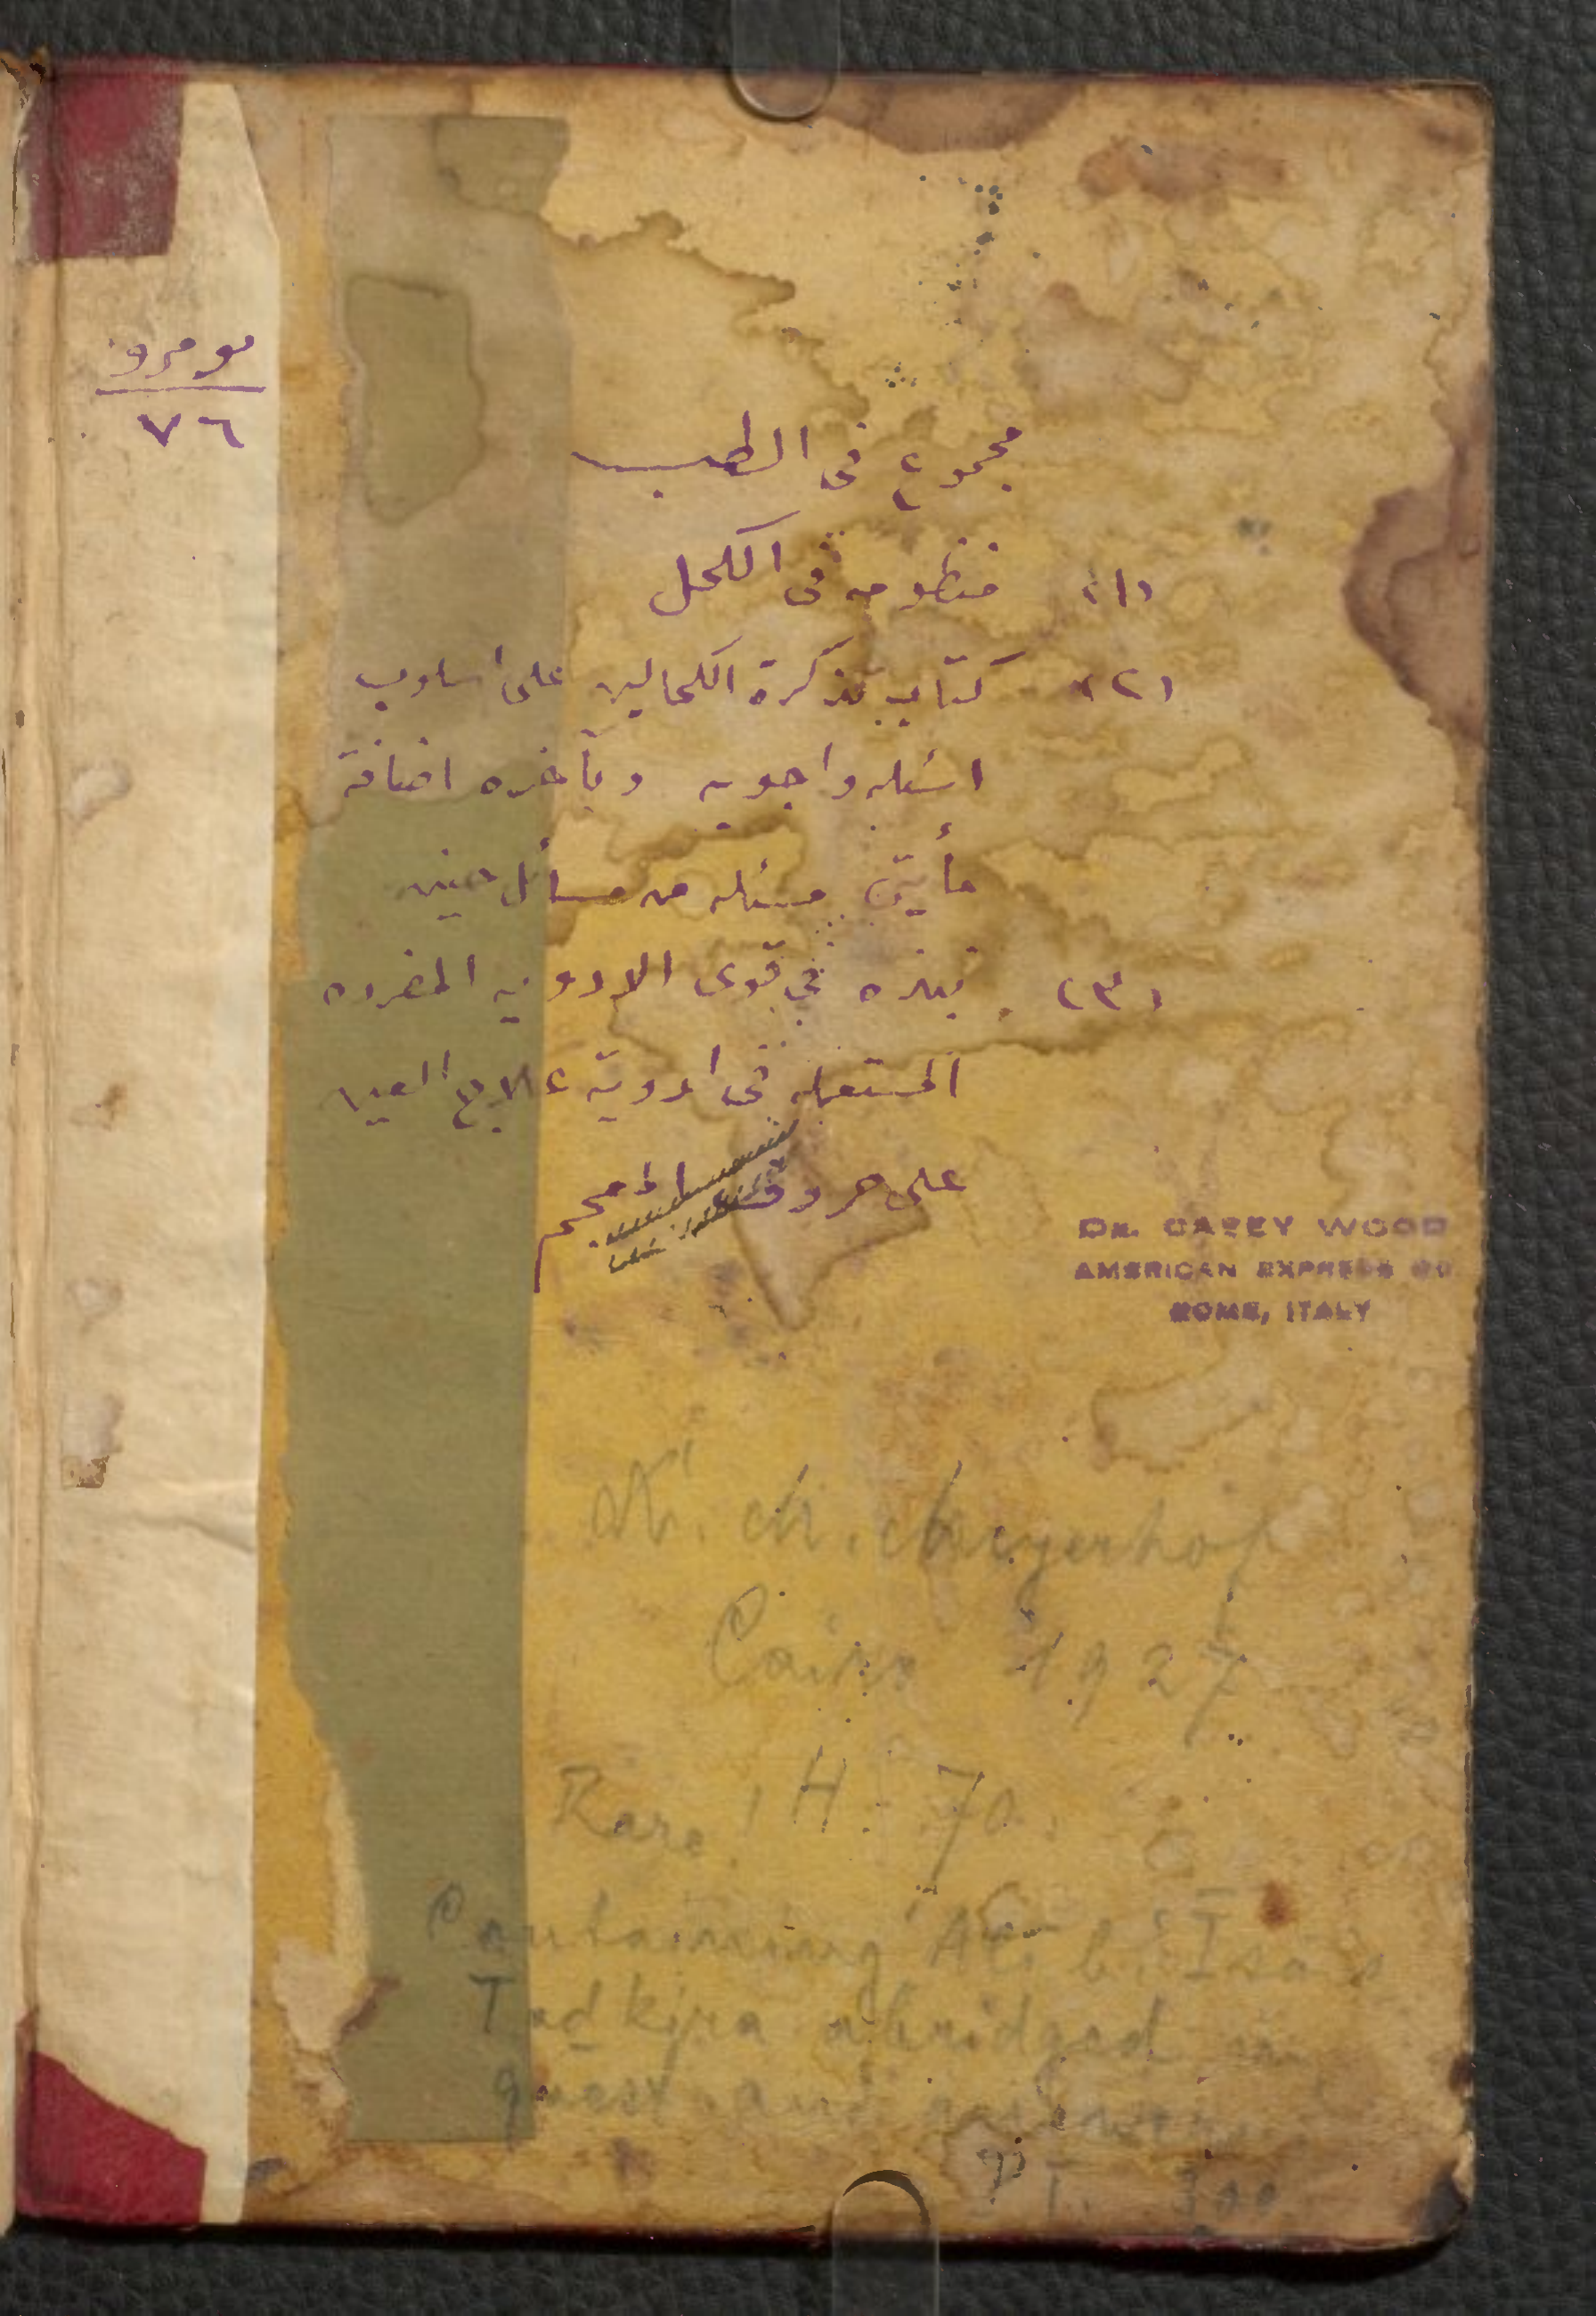 مجموع فى الطب
(١) منظومه فى الكحل
(٢) كتاب تذكرة الكحالين على اسلوب
اسئله واجوبه وبآخره اضافة
مأيتى مسئله من مسائل حنين
(٣) نبذه فى قوى الادويه المفرده
المستعمله فى ادوية علاج العين
على حروف المعجم
٧٦
DR. CASEY WOOD
AMERICAN EXPRESS CO
ROME, ITALY
M. Meyerhof
Cairo 1927
Rare! H. 70.
Containing 'Ali b. 'Īsā's
Tadkira abridged in
quest. and answers.